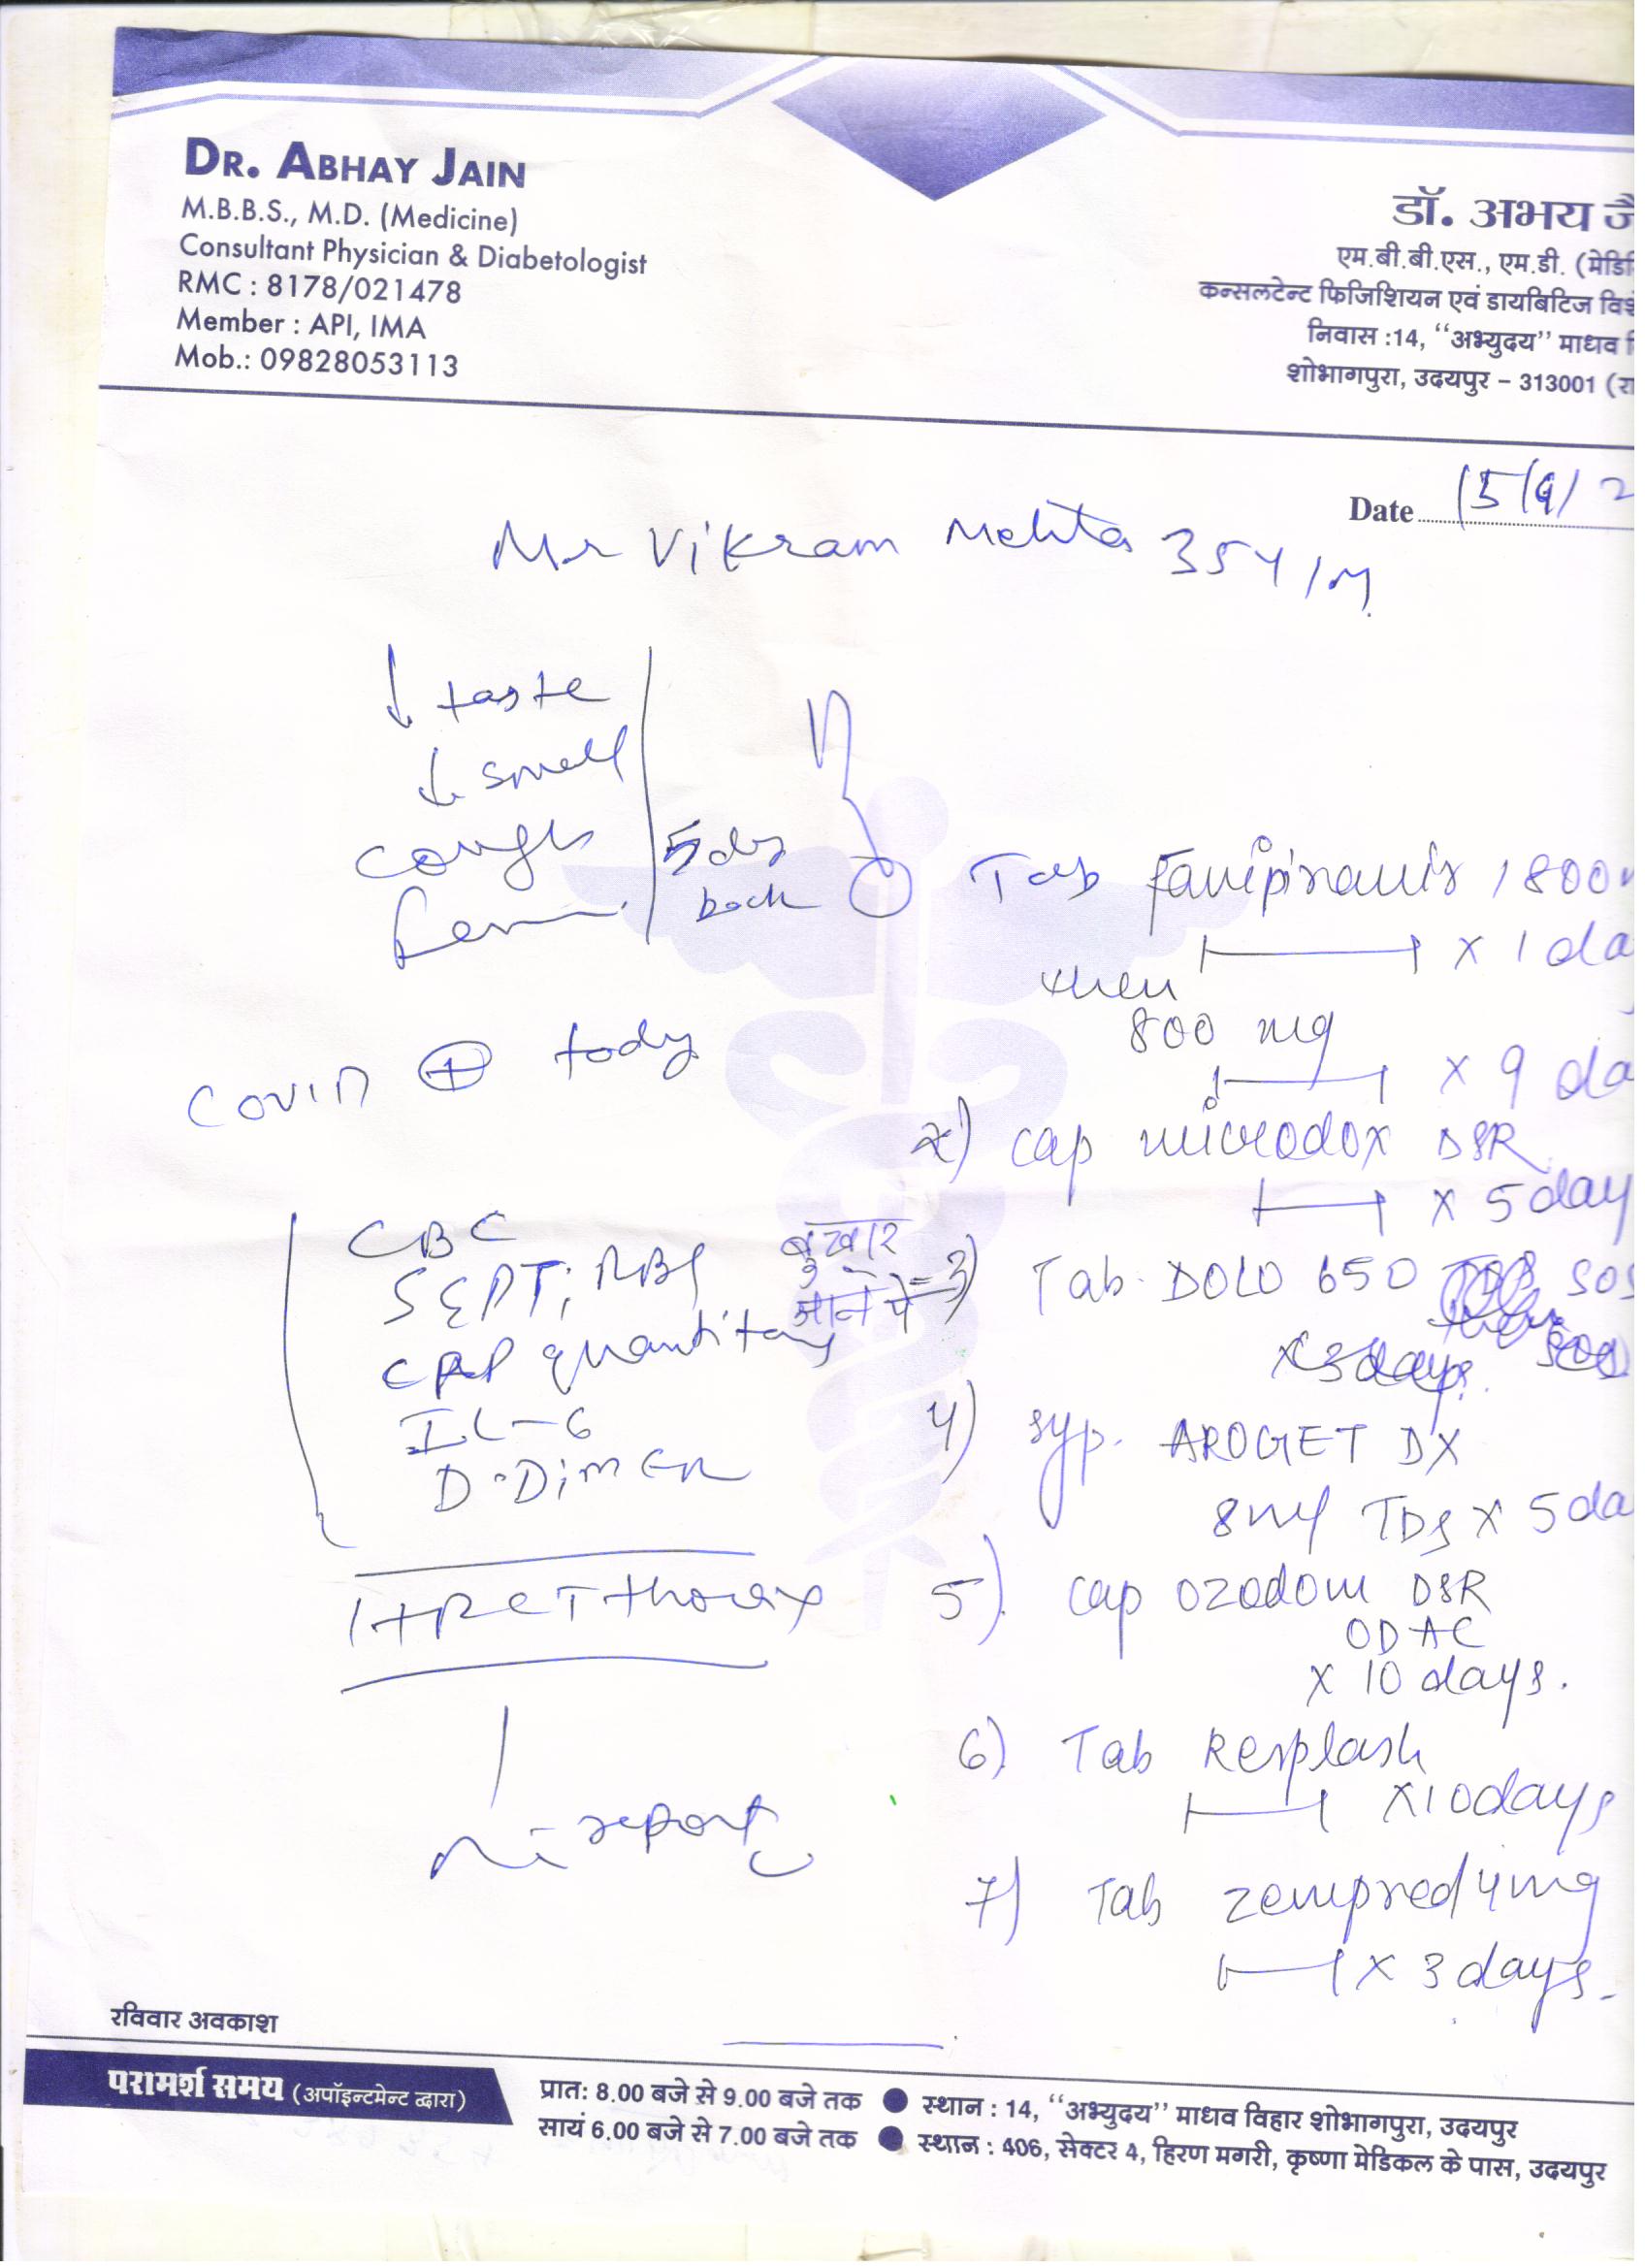 DR. ABHAY JAIN
M.B.B.S., M.D. (Medicine)
Consultant Physician & Diabetologist
RMC : 8178/021478
Member : API, IMA
Mob.: 09828053113
डॉ. अभय जै
एम.बी.बी.एस., एम.डी. (मेडि
कन्सलटेन्ट फिजिशियन एवं डायबिटिज विशे
निवास :14, ‘‘अभ्युदय’’ माधव वि
शोभागपुरा, उदयपुर – 313001 (रा
Date 15/9/2
Mr Vikram Mehta 35Y/M
↓ taste
↓ smell
cough
5 days
back
COVID ⊕ today
CBC
SGPT; RBS
CRP quantitay
IL-6
D-Dimer
HRCT thorax
report
Tab Favipiravir 1800
x 1 da
then
800 mg
x 9 da
2) cap microdox DSR
x 5 day
बुखार
आने पे = 3) Tab. DOLO 650 SOS
x 3 days.
4) syp. AROGET DX
8ml TDS x 5 da
5) cap ozodom DSR
OD AC
x 10 days.
6) Tab Resplash
x 10 days
7) Tab zempred 4mg
x 3 days.
रविवार अवकाश
परामर्श समय (अपॉइन्टमेन्ट द्वारा)
प्रातः 8.00 बजे से 9.00 बजे तक ● स्थान : 14, ‘‘अभ्युदय’’ माधव विहार शोभागपुरा, उदयपुर
सायं 6.00 बजे से 7.00 बजे तक ● स्थान : 406, सेक्टर 4, हिरण मगरी, कृष्णा मेडिकल के पास, उदयपुर